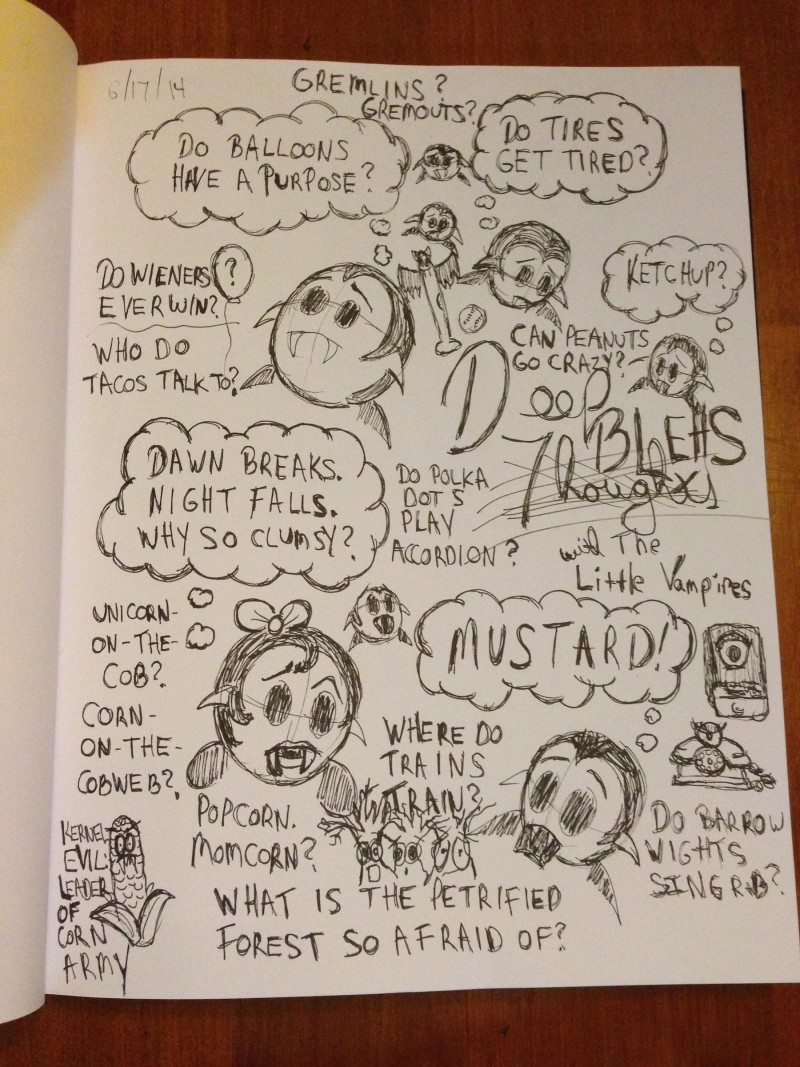 6/17/14
GREMLINS?
GREMOUTS?
DO BALLOONS
HAVE A PURPOSE?
DO TIRES
GET TIRED?
DO WIENERS
EVER WIN?
?
KETCHUP?
WHO DO
TACOS TALK TO?
CAN PEANUTS
GO CRAZY?
Deep
BLEHS
Thoughts
with The
Little Vampires
DAWN BREAKS.
NIGHT FALLS.
WHY SO CLUMSY?
DO POLKA
DOTS
PLAY
ACCORDION?
UNICORN-
ON-THE-
COB?
CORN-
ON-THE-
COBWEB?
MUSTARD!
WHERE DO
TRAINS
TRAIN?
POPCORN.
MOMCORN?
DO BARROW
WIGHTS
SING R&B?
KERNEL
EVIL:
LEADER
OF
CORN
ARMY
WHAT IS THE PETRIFIED
FOREST SO AFRAID OF?